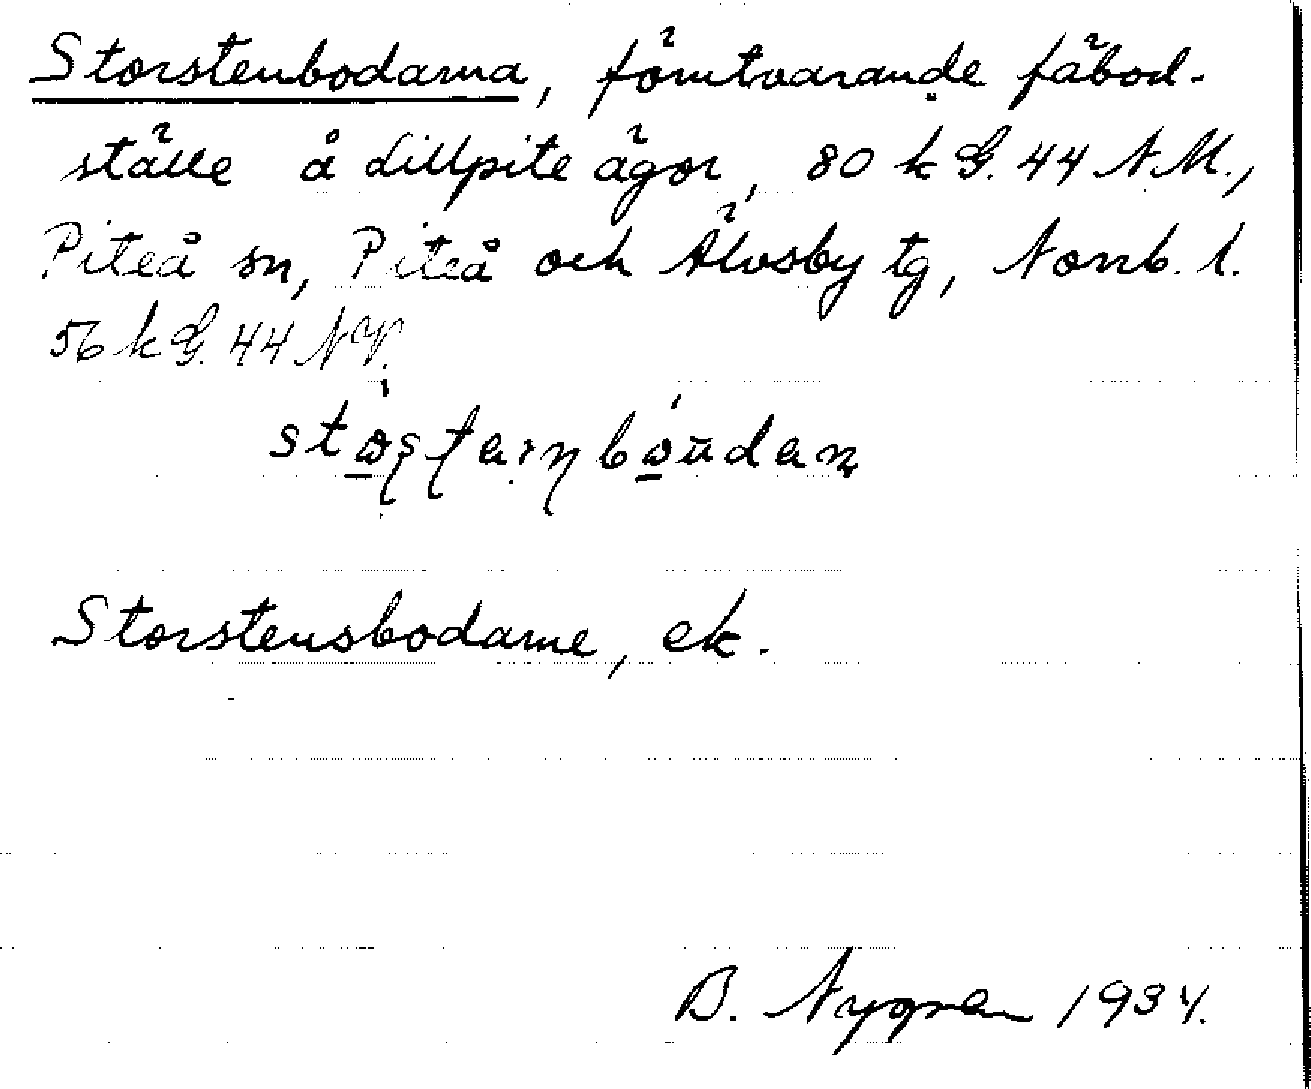 Storstenbodarna, förutvarande fäbod-
ställe å Lillpite ägor, 80 k G. 44 N.M.,
Piteå sn, Piteå och Älvsby tg, Norrb. l.
56 k G. 44 NV.
Storstensbodarne, ek.
B. Nygren 1934.